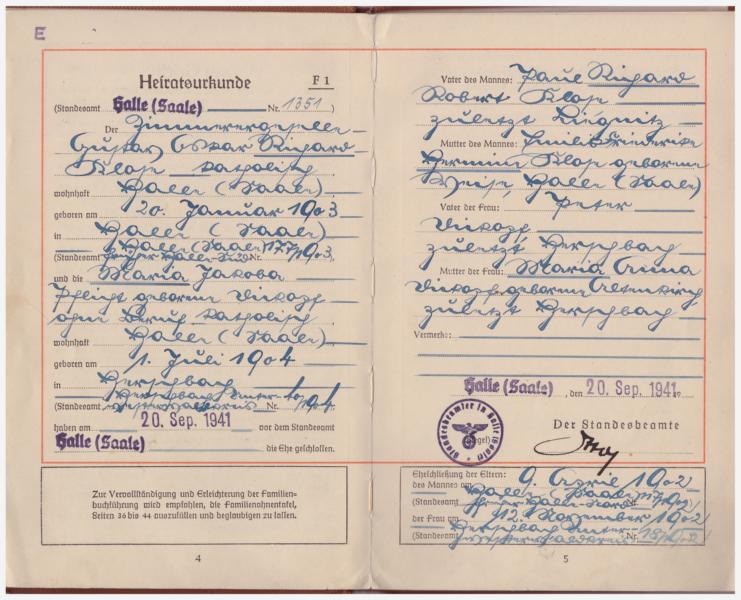 E
Heiratsurkunde F 1
(Standesamt Halle (Saale) Nr. 1351)
Der Zimmerergeselle
Gustav Oskar Richard
Klose katholisch
wohnhaft Halle (Saale)
geboren am 20. Januar 1903
in Halle (Saale)
(Standesamt Halle (Saale) Nr. 177/1903)
und die Maria Jakoba
geborene
ohne Beruf katholisch
wohnhaft Halle (Saale)
geboren am 1. Juli 1904
in Herschbach
(Standesamt Herschbach Unter- Nr.
haben am 20. Sep. 1941 vor dem Standesamt
Halle (Saale) die Ehe geschlossen.
Zur Vervollständigung und Erleichterung der Familien-
buchführung wird empfohlen, die Familienahnentafel,
Seiten 36 bis 44 auszufüllen und beglaubigen zu lassen.
4
Vater des Mannes: Paul Richard
Robert Klose
zuletzt Liegnitz
Mutter des Mannes: Emilie Friederike
Hermine Klose geborene
Halle (Saale)
Vater der Frau: Peter
zuletzt Herschbach
Mutter der Frau: Maria Anna
geborene Altenkirch
zuletzt Herschbach
Vermerke:
Halle (Saale), den 20. Sep. 1941
Standesbeamter in Halle (Saale)
(Siegel)
Der Standesbeamte
Eheschließung der Eltern:
des Mannes am 9. April 1902
(Standesamt Halle (Saale) Nr.
der Frau am 12. November 1902
(Standesamt Herschbach Unter- Nr. 18/1902)
5